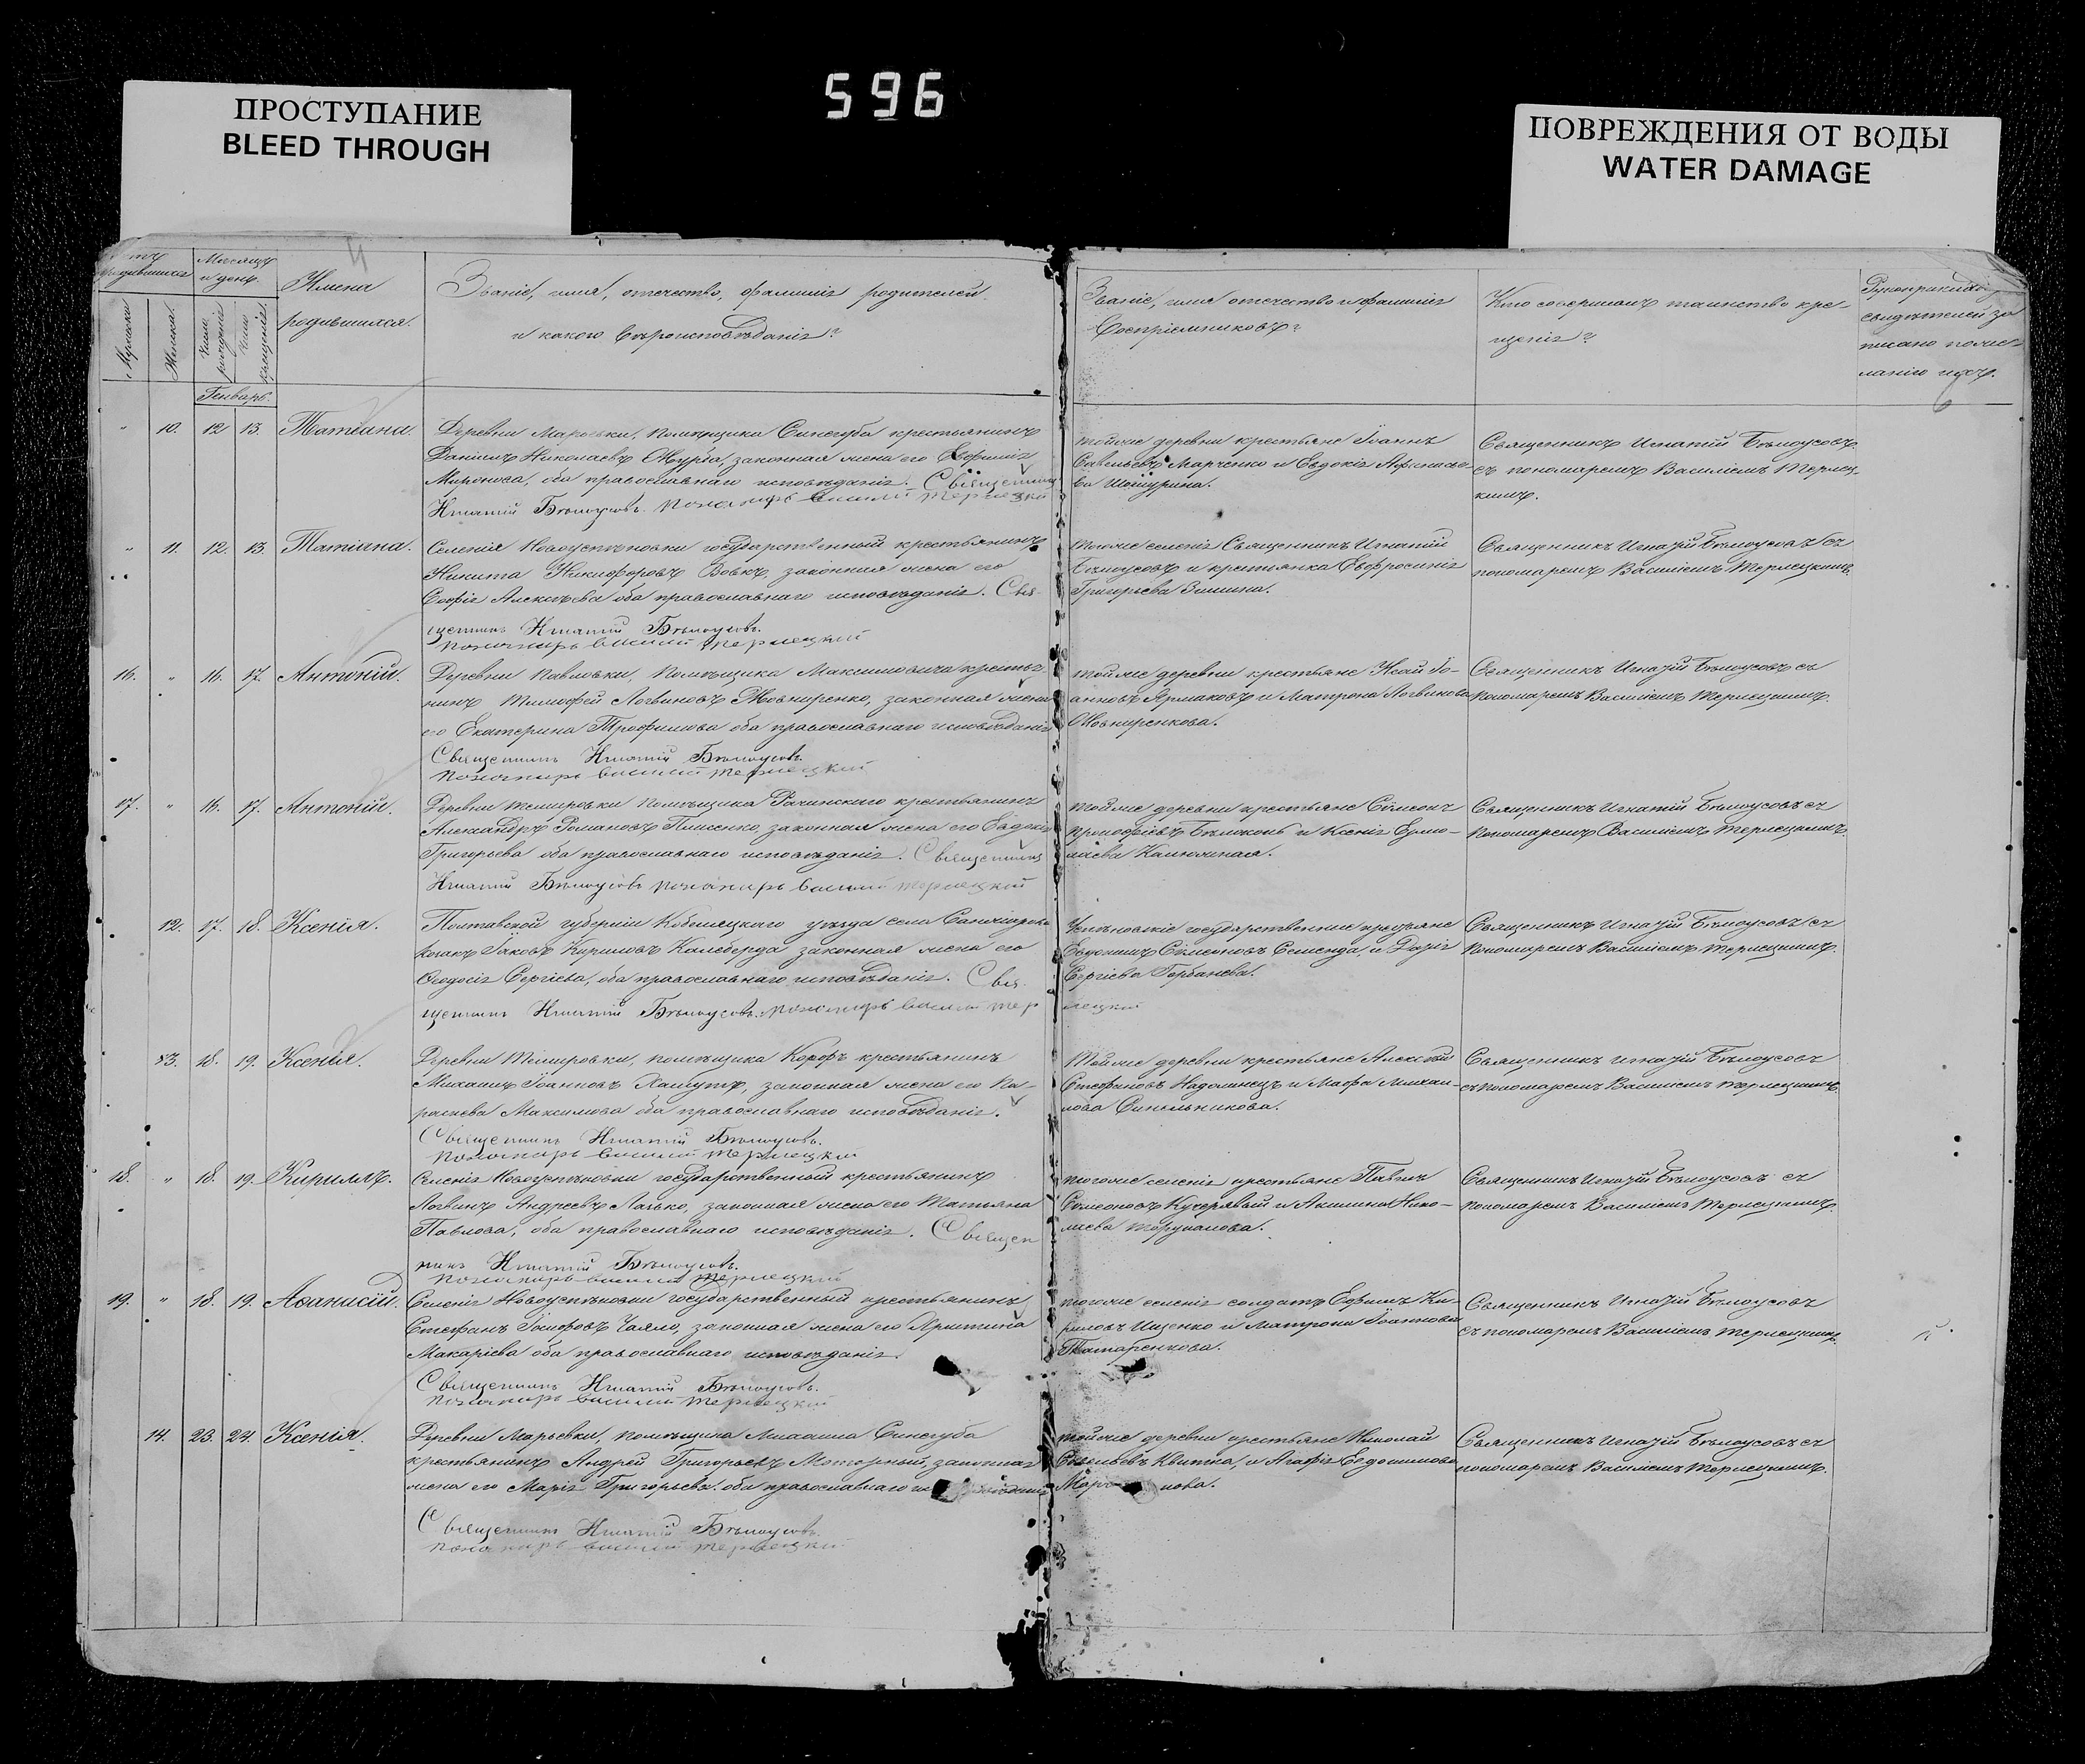 596
ПРОСТУПАНИЕ
BLEED THROUGH
ПОВРЕЖДЕНИЯ ОТ ВОДЫ
WATER DAMAGE
Мѣсяцъ
и день.
Имена
родившихся.
Званіе, имя, отечество, фамилія родителей
и какого вѣроисповѣданія?
Мужска
Женска.
Число рожденія
Число крещенія.
Генварь.
Званіе, имя отечество и фамилія
Воспріемниковъ?
Кто совершалъ таинство кре-
щенія?
Рукоприкладс
свидѣтелей за
писано по же-
ланію ихъ.
" 10. 12 13. Татіана.
Деревни Марьевки, помѣщика Синегуба крестьянинъ
Даніилъ Николаевъ Журба, законная жена его Евфимія
Миронова, оба православнаго исповѣданія. Священникъ
Игнатій Бѣлоусовъ. Пономарь Василій Терлецкій
тойже деревни крестьяне Іоаннъ
Савельевъ Марченко и Евдокія Афанасье
ва
Священникъ Игнатій Бѣлоусовъ
съ пономаремъ Василіемъ Терлец
кимъ.
" 11. 12. 13. Татіана.
Селенія Новоуспѣновки государственный крестьянинъ
Никита Никифоровъ Вовкъ, законная жена его
Софія Алексѣева оба православнаго исповѣданія. Свя-
щенникъ Игнатій Бѣлоусовъ.
Пономарь Василій Терлецкій
тогоже селенія Священникъ Игнатій
Бѣлоусовъ и крестьянка Евфросинія
Григорьева Зимина.
Священникъ Игнатій Бѣлоусовъ съ
пономаремъ Василіемъ Терлецкимъ.
16. " 16. 17. Антоній.
Деревни Павловки, помѣщика Максимовича крестья-
нинъ Тимофей Логвиновъ Жовниренко, законная жена
его Екатерина Трофимова оба православнаго исповѣданія
Священникъ Игнатій Бѣлоусовъ.
Пономарь Василій Терлецкій
тойже деревни крестьяне Исай Іо-
анновъ Ярмаковъ и Матрона Логвинова
Жовниренкова.
Священникъ Игнатій Бѣлоусовъ съ
пономаремъ Василіемъ Терлецкимъ.
17. " 16. 17. Антоній.
Деревни Темировки помѣщика Рачинскаго крестьянинъ
Александръ Романовъ законная жена его Евдокія
Григорьева оба православнаго исповѣданія. Священникъ
Игнатій Бѣлоусовъ Пономарь Василій Терлецкій
тойже деревни крестьяне Симеонъ
Прокофіевъ Бѣлоконь и Ксенія Ермо-
лаева
Священникъ Игнатій Бѣлоусовъ съ
пономаремъ Василіемъ Терлецкимъ.
12. 17. 18. Ксенія.
Полтавской губерніи Кобеляцкаго уѣзда села
козакъ Іаковъ Кириловъ Калеберда законная жена его
Феодосія Сергіева, оба православнаго исповѣданія. Свя-
щенникъ Игнатій Бѣлоусовъ. Пономарь Василій Тер
лецкій
Успѣновскіе государственные крестьяне
Евдокимъ Симеоновъ и Дарія
Сергіева Горбанева.
Священникъ Игнатій Бѣлоусовъ съ
пономаремъ Василіемъ Терлецкимъ.
13. 18. 19. Ксенія.
Деревни Темировки, помѣщика Корфъ крестьянинъ
Михаилъ Іоанновъ законная жена его Па-
раскева Максимова оба православнаго исповѣданія.
Священникъ Игнатій Бѣлоусовъ.
Пономарь Василій Терлецкій
тойже деревни крестьяне Алексѣй
Стефановъ Надолинецъ и Марфа Михаи-
лова Синельникова.
Священникъ Игнатій Бѣлоусовъ
съ пономаремъ Василіемъ Терлецкимъ.
18. " 18. 19. Кириллъ.
Селенія Новоуспѣновки государственный крестьянинъ
Логвинъ Андреевъ законная жена его Татьяна
Павлова, оба православнаго исповѣданія. Священ
никъ Игнатій Бѣлоусовъ.
Пономарь Василій Терлецкій
тогоже селенія крестьяне Павелъ
Симеоновъ Кучерявый и Акилина Нико-
лаева
Священникъ Игнатій Бѣлоусовъ съ
пономаремъ Василіемъ Терлецкимъ.
19. " 18. 19. Аѳанасій.
Селенія Новоуспѣновки государственный крестьянинъ
Стефанъ Іосифовъ Чаяло, законная жена его Христина
Макаріева оба православнаго исповѣданія.
Священникъ Игнатій Бѣлоусовъ.
Пономарь Василій Терлецкій
тогоже селенія солдатъ Ефимъ Ки-
риловъ Ищенко и Матрона Іоаннова
Татаренкова.
Священникъ Игнатій Бѣлоусовъ
съ пономаремъ Василіемъ Терлецкимъ.
14. 23. 24. Ксенія.
Деревни Марьевки, помѣщика Михаила Синегуба
крестьянинъ Андрей Григорьевъ Моторный, законная
жена его Марія Григорьева. оба православнаго
Священникъ Игнатій Бѣлоусовъ.
Пономарь Василій Терлецкій
тойже деревни крестьяне Николай
Савельевъ Квитка, и Агафія Евдокимова
Священникъ Игнатій Бѣлоусовъ съ
пономаремъ Василіемъ Терлецкимъ.